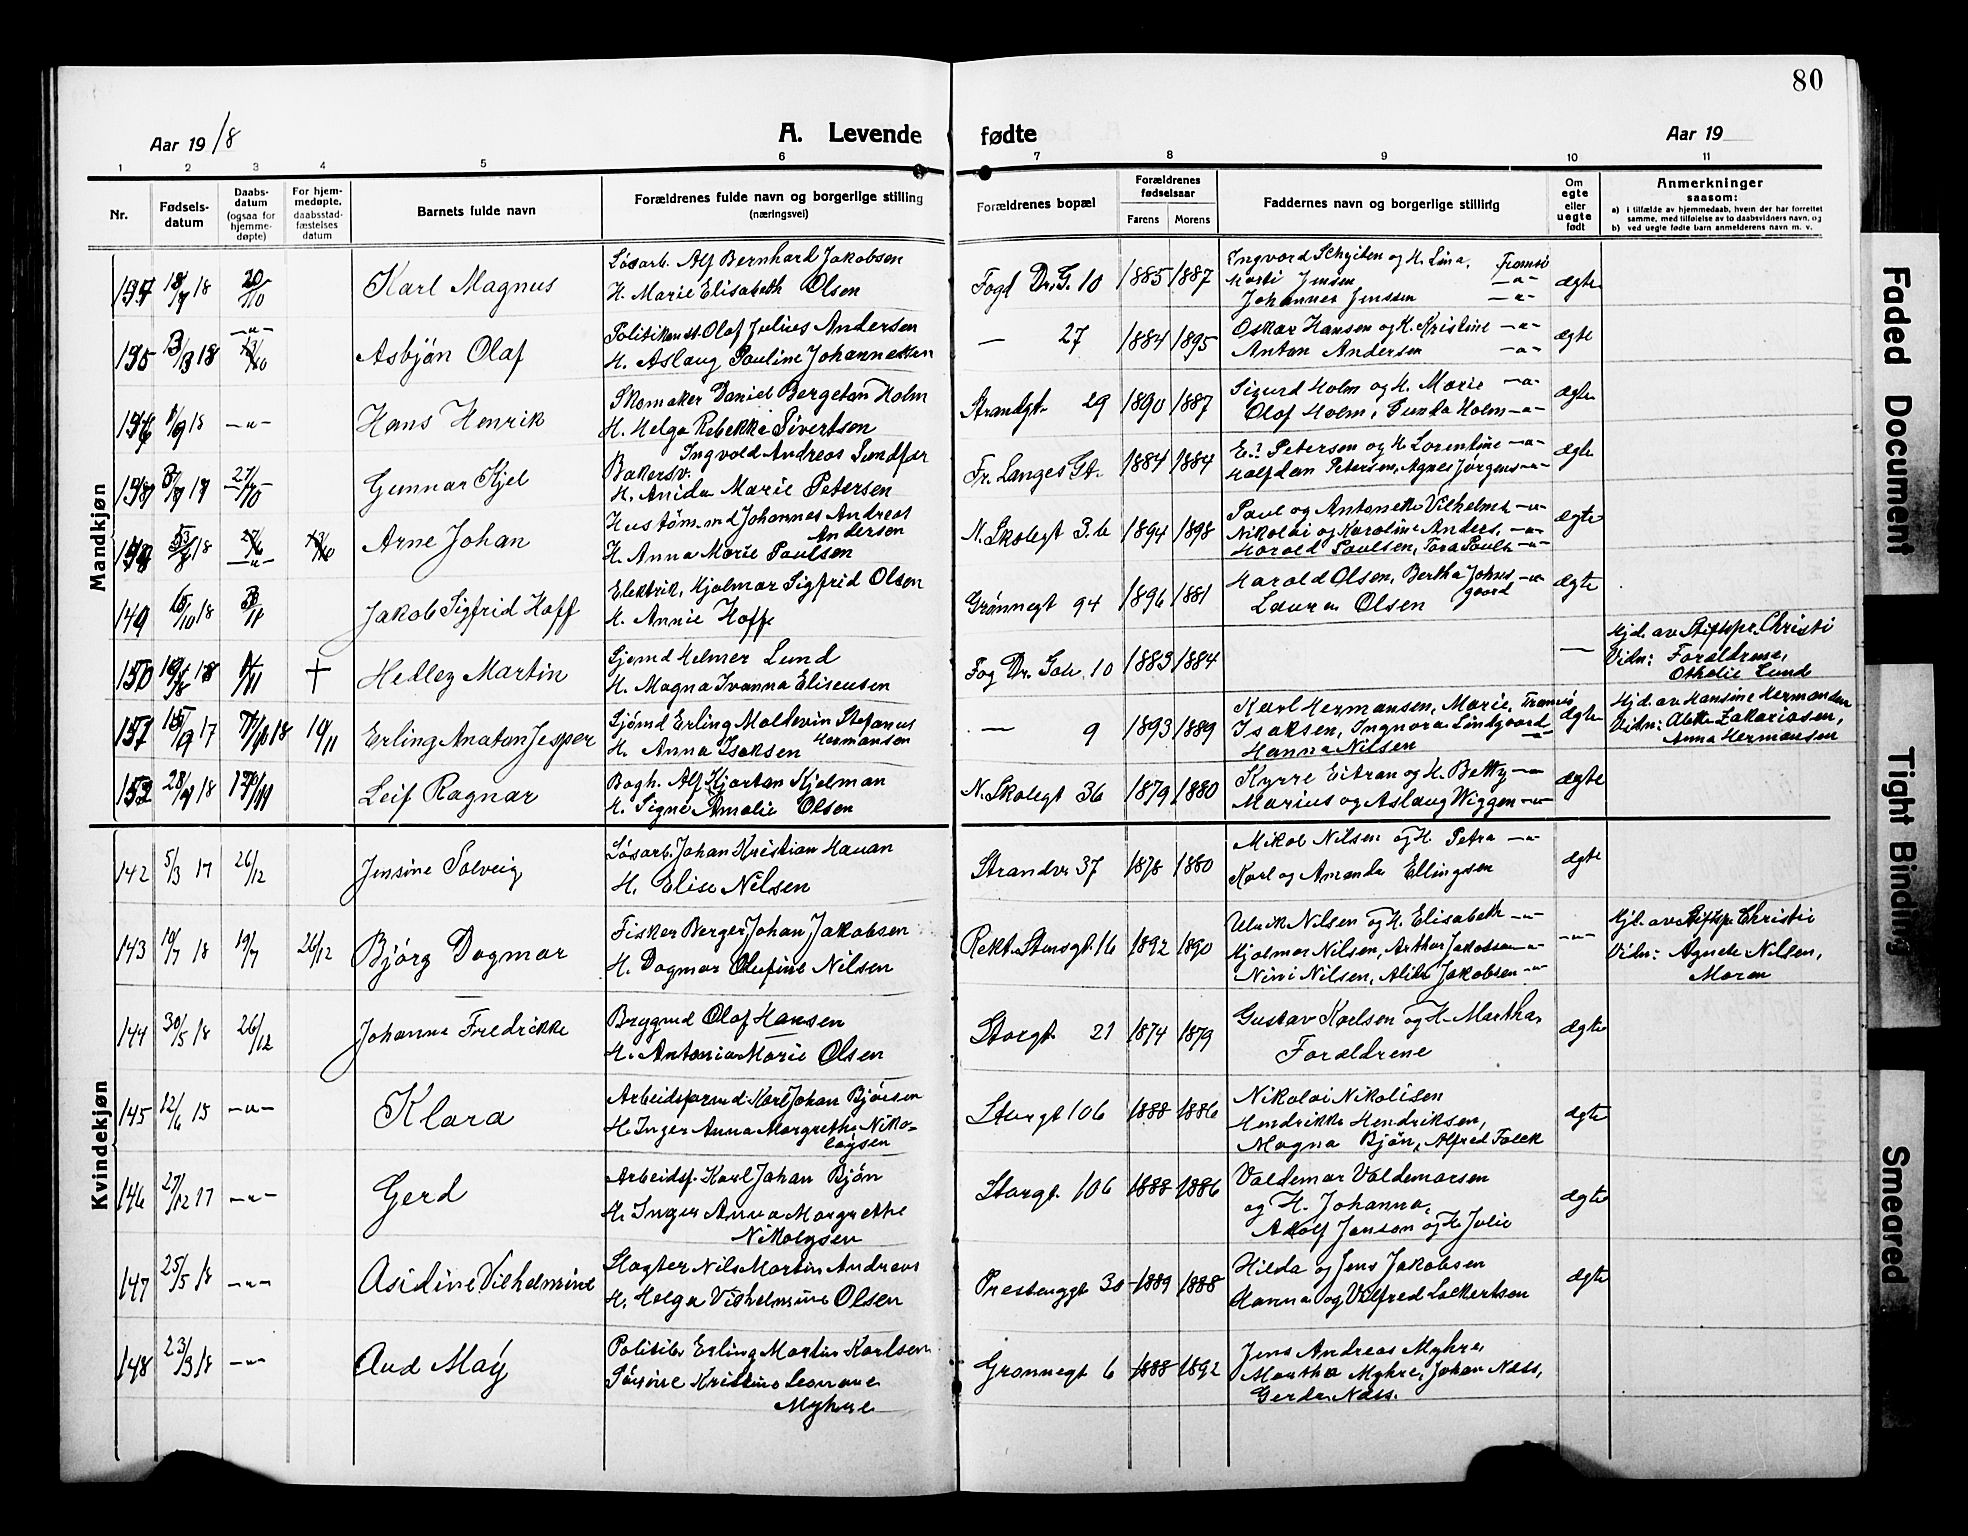 80
Aar 1918
A. Levende fødte
Aar 19
1 2 3 4 5 6 7 8 9 10 11
Nr.
Fødsels-
datum
Daabs-
datum
(ogsaa for
hjemme-
døpte)
For hjem-
medøpte,
daabsstad-
fæstelses
datum
Barnets fulde navn
Forældrenes fulde navn og borgerlige stilling
(næringsvei)
Forældrenes bopæl
Forældrenes
fødselsaar
Farens Morens
Faddernes navn og borgerlige stilling
Om
egte
eller
uegte
født
Anmerkninger
saasom:
a) i tilfælde av hjemmedaab, hvem der har forrettet
samme, med tilføielse av to daabsvidners navn, og
b) ved uegte fødte barn anmelderens navn m. v.
Mandkjøn
Karl Magnus
Løsarb. Alf Bernhard Jakobsen
H. Marie Elisabeth Olsen
Fogd Dr. G. 10 1885 1887
Ingvard Schytten og H. Lina, Tromsø
Marti Jensen -"-
Johannes Jenssen -"-
ægte
Asbjøn Olaf
Politikonst. Olaf Julius Andersen
H. Aslaug Pauline Johannessen
— 27 1884 1895
Oskar Hansen og H. Kristine -"-
Anton Andersen -"-
ægte
-"- Hans Henrik
Skomaker Daniel Bergeton Holm
H. Helga Rebekka Sivertsen
Strandgt. 29 1890 1887
Sigurd Holm og H. Marie -"-
Olaf Holm, Gunda Holm -"-
ægte
Gunnar Kjel
Bakersv. Ingvold Andreas Sundfær
H. Anida Marie Petersen
Fr. Langes Gt. 1884 1884
Petersen og H. Lorentine -"-
Halfdan Petersen, Agnes Jørgens -"-
ægte
Arne Johan
Hustømmd Johannes Andreas
Andersen
H. Anna Marie Paulsen
N. Skolegt 3.b 1894 1898
Paul og Antonette Vilhelms -"-
Nikolai og Karoline Anders, -"-
Harald Paulsen, Tora Pauls -"-
ægte
149 15/10 18
Jakob Sigfrid Hoff
Elektrik. Hjalmar Sigfrid Olsen
H. Annie Hoff
Grønnegt 94 1896 1881
Harald Olsen, Bertha Johns -"-
gaard
Laura Olsen
ægte
150 † Hedley Martin
Sjømd Helmer Lund
H. Magna Ivanna Eliseusen
Fog Dr. Gt. 10 1883 1884
—
Hjd. av Stiftspr. Christi
Vidn: Forældrene,
Othelie Lund
151 19/11
Erling Anaton Jesper
Sjømd Erling Moldevin Stefanus
Hermansen
H. Anna Isaksen
— 9 1893 1889
Karl Hermansen, Marie, Tromsø
Isaksen, Ingnora Lindgaard -"-
Hanna Nilsen
ægte
Hjd. av Hansine Hermansen
Vidn: Alette Zakariasen,
Anna Hermansen
152
Leif Ragnar
Bogh. Alf Kjartan Kjelman
H. Signe Amalie Olsen
N. Skolegt 36 1879 1880
Kyrre Eitran og H. Betty -"-
Marius og Aslaug Wiggen -"-
ægte
Kvindekjøn
142 5/3 17 26/12
Jensine Solveig
Løsarb. Johan Kristian Hauan
H. Elise Nilsen
Strandv. 37 1878 1880
Mikal Nilsen og H. Petra -"-
Karl og Amanda Ellingsen
ægte
143 19/7 18 19/7 26/12
Bjørg Dagmar
Fisker Berger Johan Jakobsen
H. Dagmar Olufine Nilsen
Rekt. Stensgt. 16 1892 1890
Ulrik Nilsen og H. Elisabeth -"-
Hjalmar Nilsen, Arthur Jakobsen -"-
Nini Nilsen, Alida Jakobsen -"-
-"-
Hjd. av Stiftspr Christie
Vidn: Agnete Nilsen,
Moren
144 30/5 18 26/12
Johanne Fredrikke
Bryggmd Olaf Hansen
H. Antonia Marie Olsen
Storgt. 21 1874 1879
Gustav Karlsen og H. Martha,
Forældrene
ægte
145 12/6 15 -"-
Klara
Arbeidsformd Karl Johan Bjørsen
H. Inger Anna Margrethe Niko-
laysen
Storgt 106 1888 1886
Nikolai Nikolisen
Hendrikke Hendriksen,
Magna Bjøn, Alfred Falck
ægte
146 27/12 17 -"-
Gerd
Arbeidsf. Karl Johan Bjøn
H. Inger Anna Margrethe
Nikolysen
Storgt. 106 1888 1886
Valdemar Valdemarsen
og H. Johanna,
Adolf Janson og H. Julie
ægte
147 25/5 18 -"-
Asidine Vilhelmine
Slagter Nils Martin Andreas
H. Helga Vilhelmine Olsen
Prestenggt 30 1889 1888
Hilda og Jens Jakobsen
Hanna og Vilfred Lockertsen
ægte
148 23/3 18 -"-
Aud Maÿ
Politib. Erling Martin Karlsen
Jørgine Kristine Leonore
Myhre
Grønnegt 6 1888 1892
Jens Andreas Myhre
Martha Myhre, Johan Næss,
Gerda Næss.
Faded Document
Tight Binding
Smeared